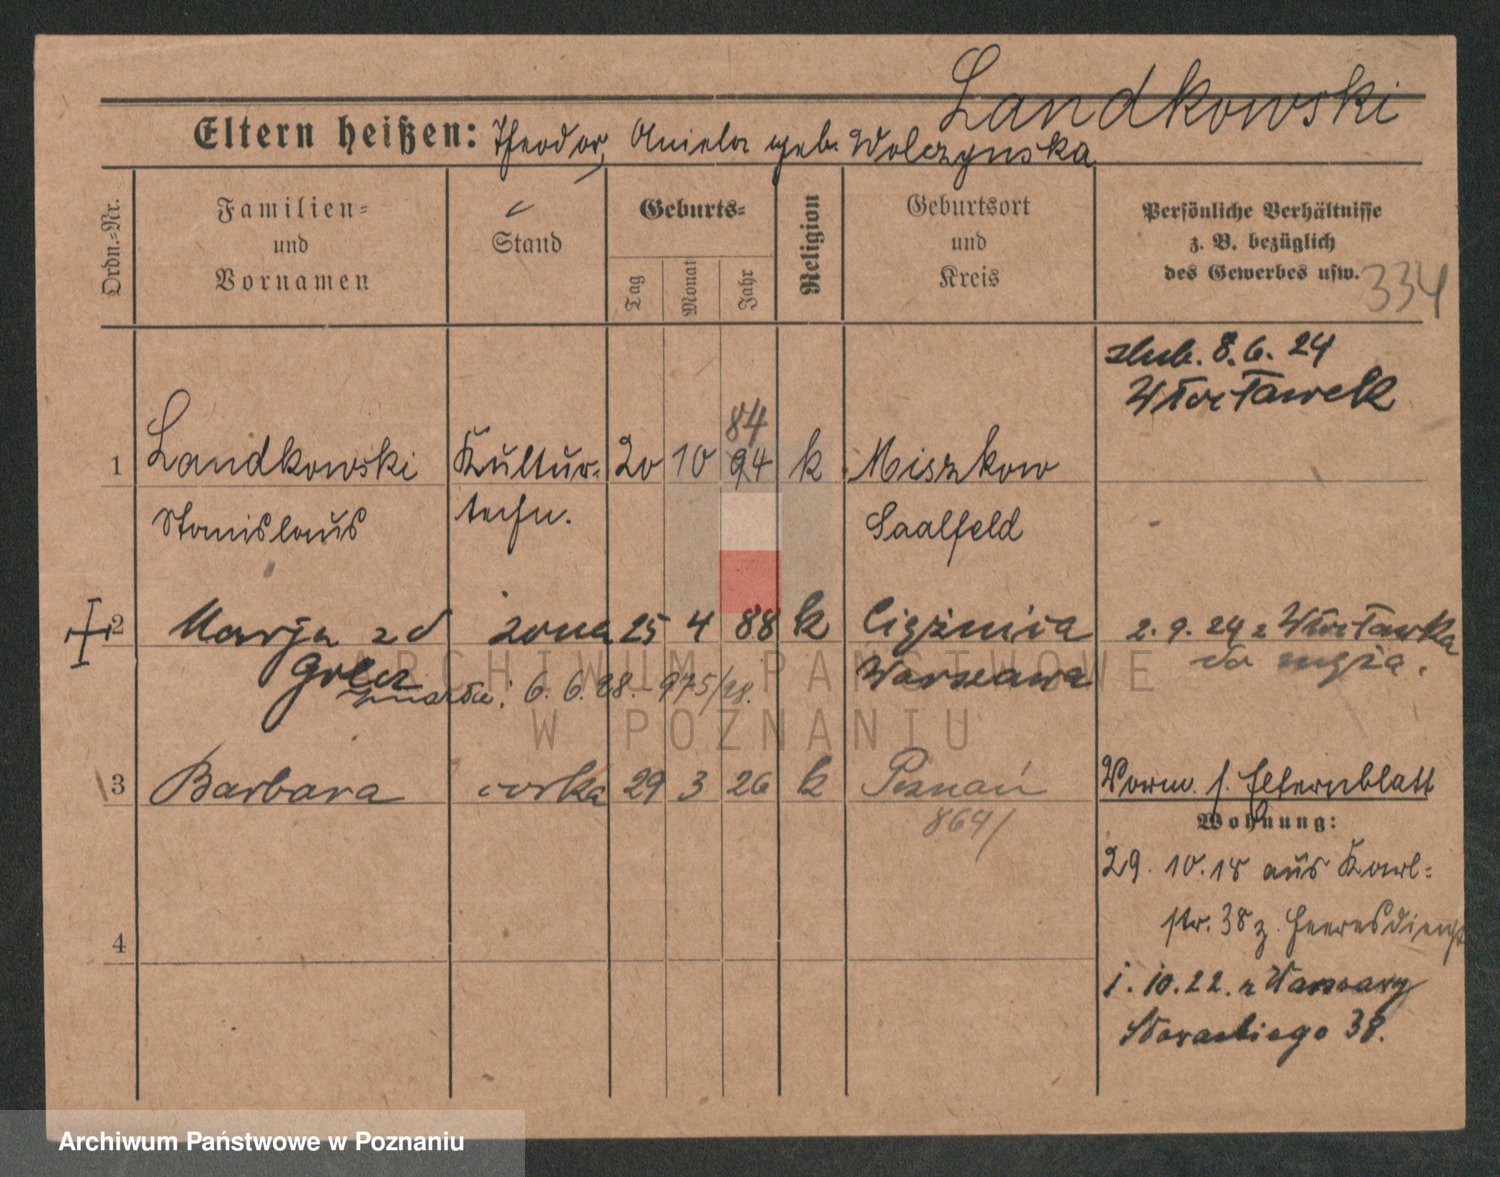 Landkowski
Eltern heißen: Theodor, Aniela geb. Wolczynska
Ordn.-Nr.
Familien-
und
Vornamen
Stand
Geburts-
Tag
Monat
Jahr
Religion
Geburtsort
und
Kreis
Persönliche Verhältnisse
z. B. bezüglich
des Gewerbes usw.
334
ślub. 8.6.24
Włocławek
84
1 Landkowski Kultur- 20 10 94 k Miszkow
Stanislaus techn. Saalfeld
2 Marja zd żona 25 4 88 k 2.9.24 z Włocławka
do męża.
Grecz Warszawa
zmarła: 6.6.28. 975/28.
3 Barbara córka 29 3 26 k Poznań
864/
Vorm. s. Elternblatt
Wohnung:
29.10.18 aus Karl-
str. 38 z. Heeresdienst
4
1.10.22. z Warszawy
38.
ARCHIWUM PAŃSTWOWE
W POZNANIU
Archiwum Państwowe w Poznaniu